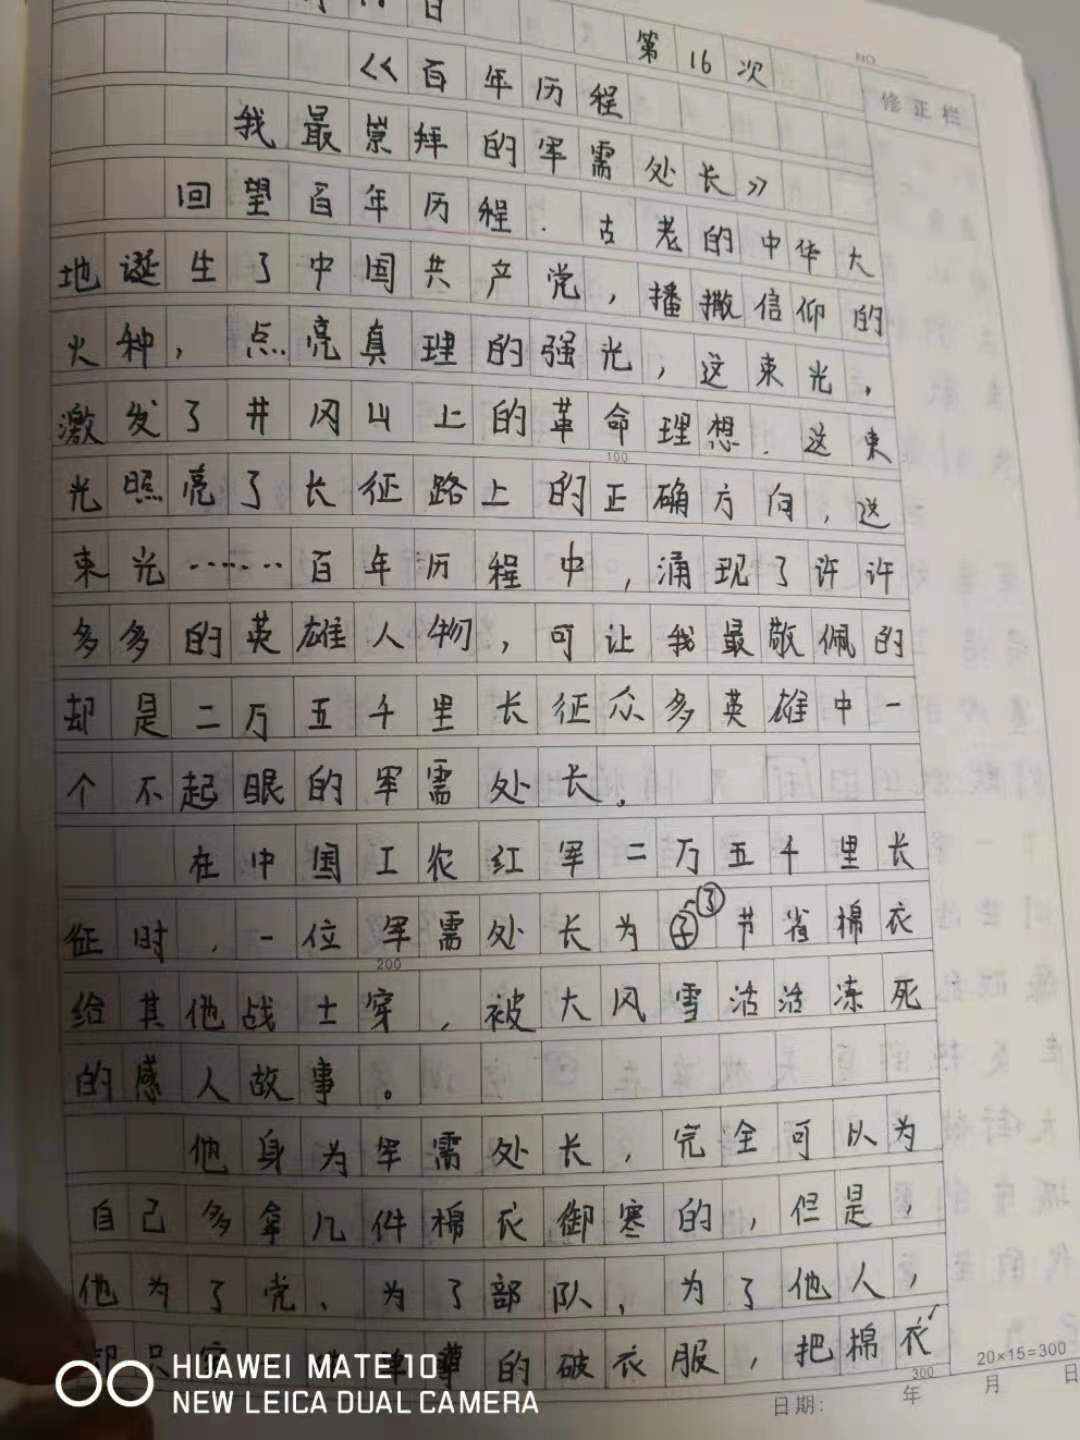 日
第16次
NO.
修正栏
《百年历程
我最崇拜的军需处长》
回望百年历程.古老的中华大
地诞生了中国共产党,播撒信仰的
火种,点亮真理的强光,这束光,
激发了井冈山上的革命理想.这束
100
光照亮了长征路上的正确方向,这
束光……百年历程中,涌现了许许
多多的英雄人物,可让我最敬佩的
却是二万五千里长征众多英雄中一
个不起眼的军需处长。
在中国工农红军二万五千里长
征时,一位军需处长为了节省棉衣
200
给其他战士穿,被大风雪活活冻死
的感人故事。
他身为军需处长,完全可以为
自己多拿几件棉衣御寒的,但是,
他为了党、为了部队,为了他人,
却只穿单薄的破衣服,把棉衣
300
20×15=300
日期: 年 月 日
HUAWEI MATE10
NEW LEICA DUAL CAMERA